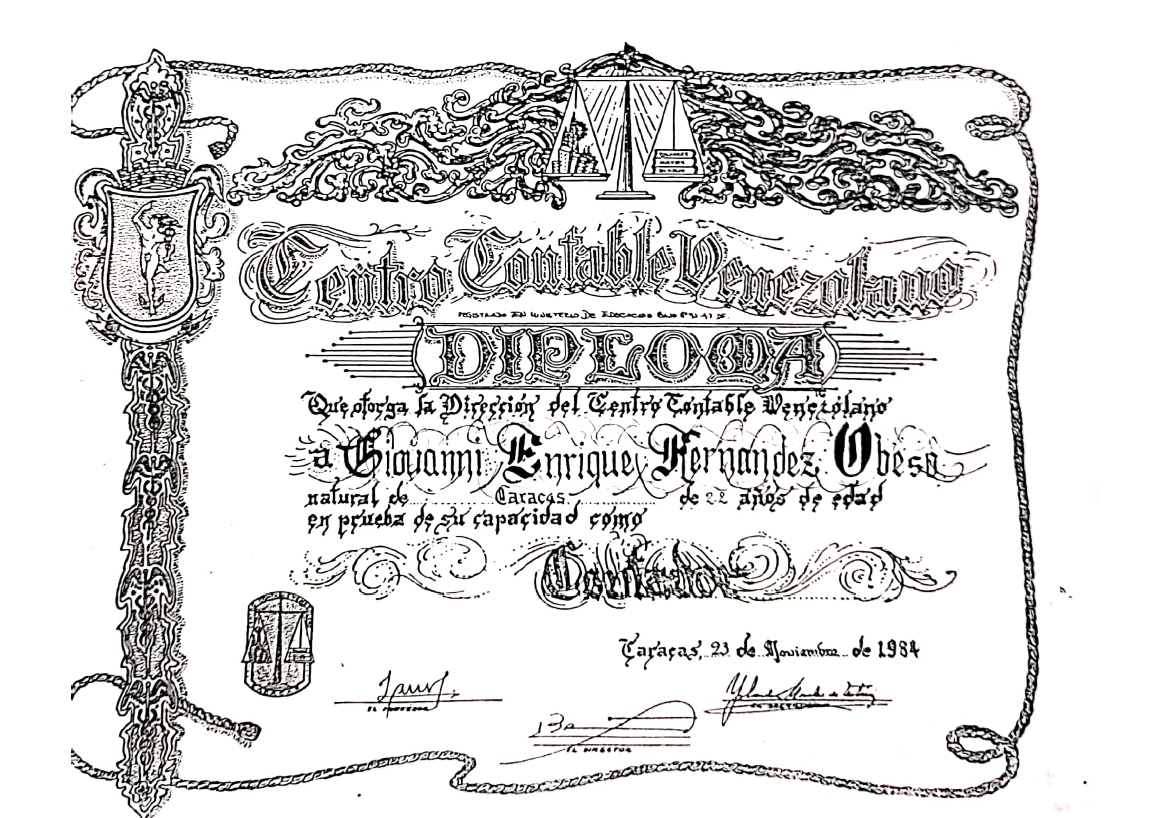 Centro Contable Venezolano
DIPLOMA
Que otorga la Dirección del Centro Contable Venezolano
a Giovanni Enrique Fernandez Obeso
natural de Caracas de 22 años de edad
en prueba de su capacidad como
Contador
Caracas, 23 de Noviembre de 1984
EL PROFESOR
EL DIRECTOR
MAYOR
DIARIO